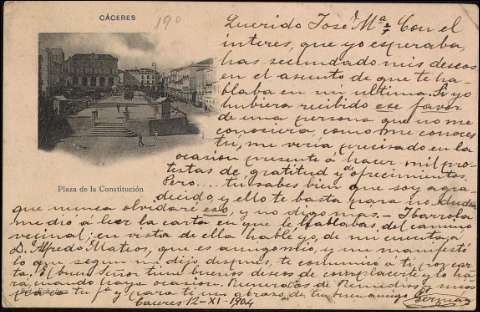 CÁCERES
190
Plaza de la Constitución
Querido José Mª: Con el
interes, que yo esperaba,
has secundado mis deseos
en el asunto de que te ha-
blaba en mi ultima. Si yo
hubiera recibido ese favor
de una persona que no me
conociera como me conoces
tu, me veria precisado en la
ocasion presente á hacer mil pro-
testas de gratitud y ofrecimientos.
Pero.... tu sabes bien que soy agra-
decido y ello te basta para no dudar
que nunca olvidaré eso, y no digo mas. — Ibarrola
me dió á leer la carta en que le hablabas del camino
vecinal; en vista de ella hablé yo, de mi cuenta, á
D. Alfredo Mateos, que es amigo mio, y me manifestó
lo que segun me dijo despues, te comunicó á ti por car-
ta. El buen Señor tiene buenos deseos de complacerte y lo ha-
rá, cuando haya ocasion. Recuerdos de Remedios y mios
para tu fª y para ti un abrazo de tu buen amigo German
Caceres 12-XI-1904